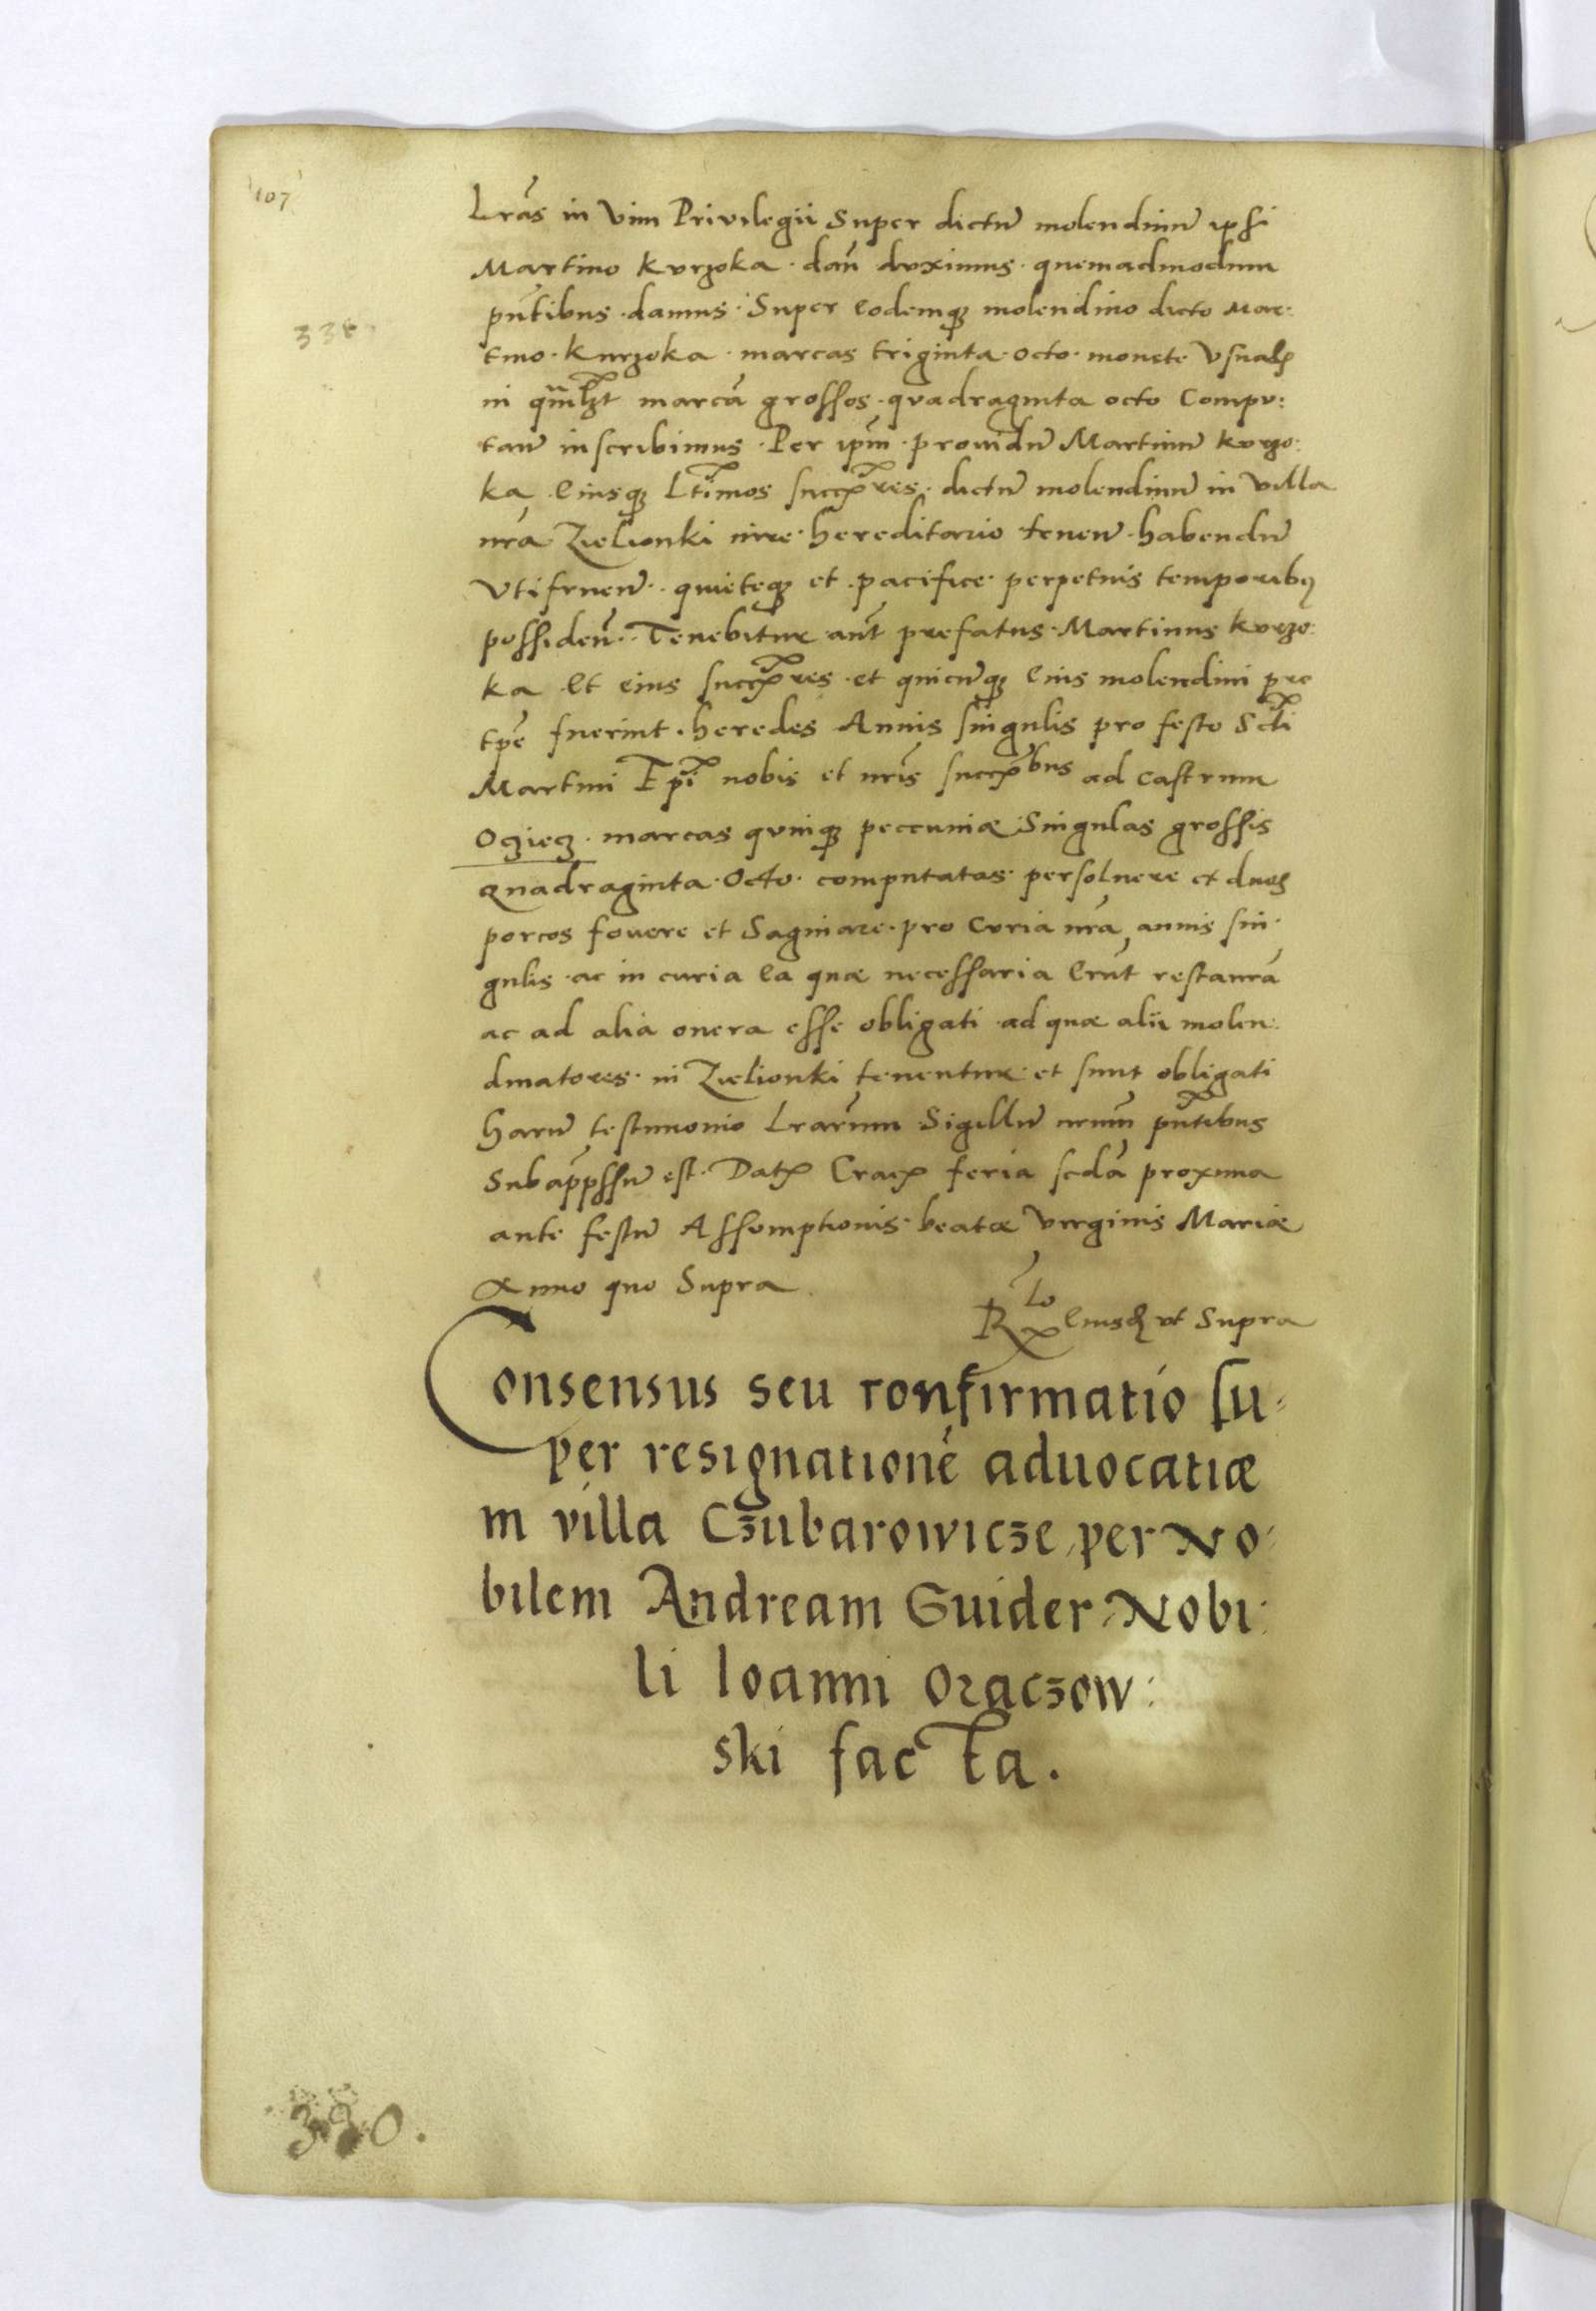 107
Lrãs in Vim Privilegii Super dictũ molendinũ ipsi
Martino Kurzoka · dañ duximus · quemadmodum
pñtibus · damus · Super eodemq; molendino dicto Mar:
tino · Kurzoka · marcas triginta · octo · monete Vsualẽ
in marcã grossos · quadraginta octo Compu:
tanñ inscribimus · Per ipm̃ · providũ Martinũ Kurzo:
ka · Eiusq; Ltimos succẽres · dictũ molendinũ in Villa
nrã Zielionki iure · hereditario tenenñ · habendũ
Vtifruenñ · quieteq; et · pacifice · perpetuis temporibꝫ
possidenñ · Tenebitur añt prefatus · Martinus Kurzo:
ka · et eius succẽres · et quicũq; Eius molendini pro
tpẽ fuerint · heredes Annis singulis pro festo Scti
Martini Epĩ nobis et nrĩs succẽbus ad Castrum
Ocziecz · marcas quinq; peccuniæ Singulas grossis
quadraginta · Octo · computatas · persoluere et duos
porcos fouere et Saginare · pro Curia nrã annis sin:
gulis · ac in curia ea quæ necessaria erũt restaurã
ac ad alia onera esse obligati · ad quæ alii molen:
dinatores · in Zielionki tenentur · et sunt obligati
Harũ testimonio Lrarum̃ Sigillũ nrum̃ pñtibus
Subãppssũ est · Datꝫ Cracꝫ feria scdã proxima
ante festũ Assumptionis · beatæ Virginis Mariæ
Anno quo Supra
Rlo Eiusdꝫ vt Supra
Consensus seu confirmatio su:
per resignationẽ aduocatiæ
in villa Czubarowicze, per No:
bilem Andream Guider, Nobi:
li Ioanni Oraczow:
ski facta.
330.